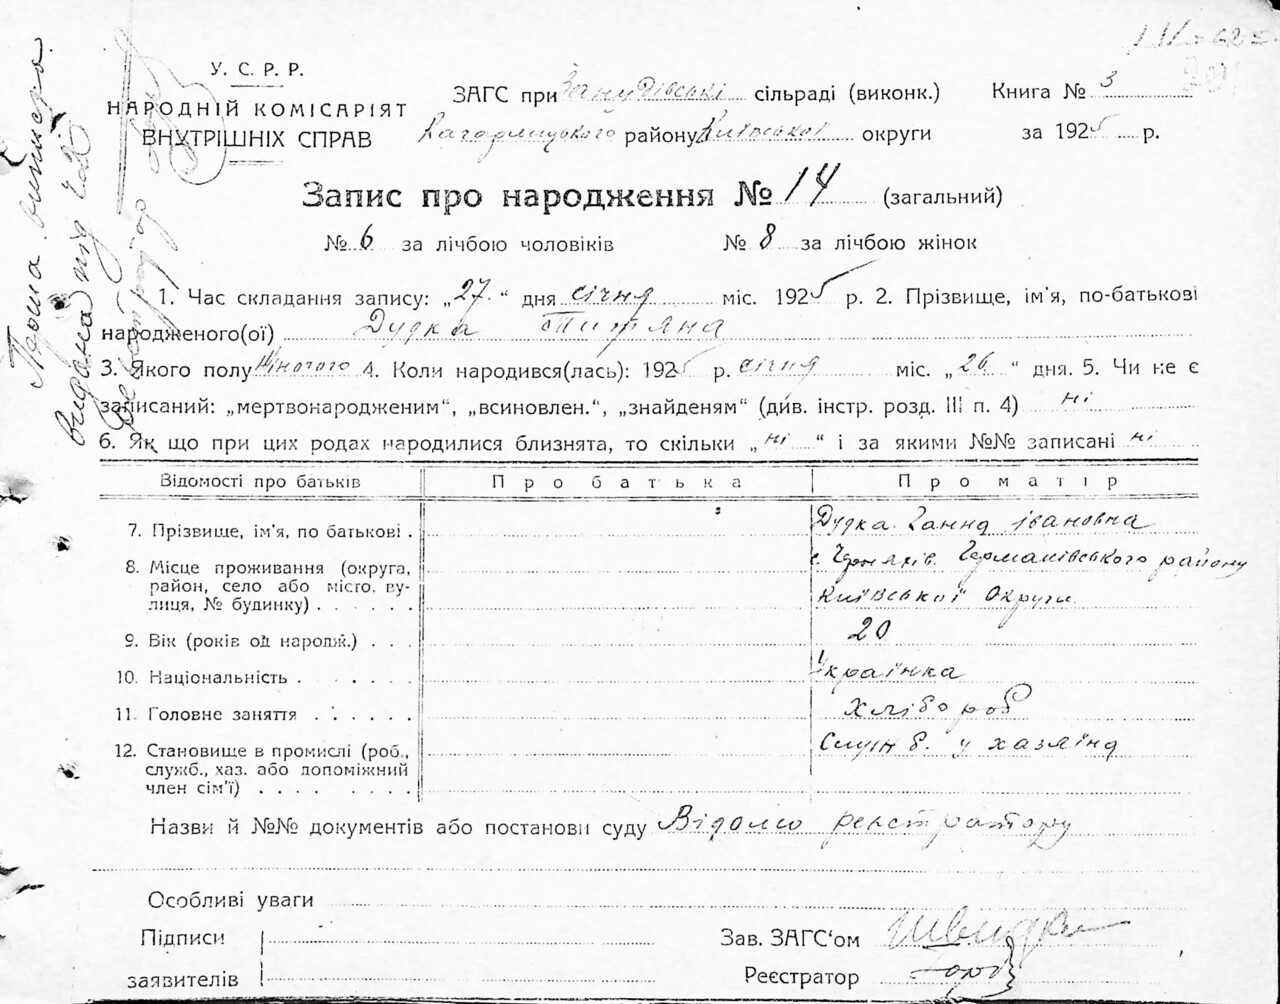 У. С. Р. Р.
НАРОДНІЙ КОМІСАРІЯТ
ВНУТРІШНІХ СПРАВ
ЗАГС при сільраді (виконк.) Книга № 3
Кагарлицького району Київської округи за 1925 р.
Запис про народження № 14 (загальний)
№ 6 за лічбою чоловіків № 8 за лічбою жінок
1. Час складання запису: „27“ дня січня міс. 1925 р. 2. Прізвище, ім'я, по-батькові
народженого(ої) Дудка Титяна
3. Якого полу жіночого 4. Коли народився(лась): 1925 р. січня міс. „26“ дня. 5. Чи не є
записаний: „мертвонародженим“, „всиновлен.“, „знайденям“ (див. інстр. розд. III п. 4) ні
6. Як що при цих родах народилися близнята, то скільки „ні“ і за якими №№ записані ні
Відомості про батьків Про батька Про матір
7. Прізвище, ім'я, по батькові . Дудка Ганна Івановна
8. Місце проживання (округа, с. Черняхів Германівського району
район, село або місто. ву-
лиця, № будинку) . . . . . Київської Округи
9. Вік (років од народж.) . . . 20
10. Національність . . . . . . Українка
11. Головне заняття . . . . . . Хлібороб
12. Становище в промислі (роб., Служб. у хазяїна
служб., хаз. або допоміжний
член сім'ї) . . . . . . . .
Назви й №№ документів або постанови суду Відомо реєстратору
Особливі уваги
Підписи Зав. ЗАГС'ом
заявителів Реєстратор
Перша виписка
видана під
реєстратор